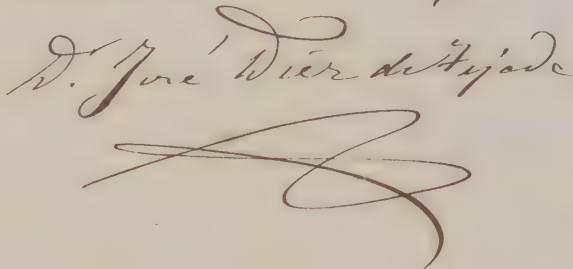 Dr José Diez de Tejada